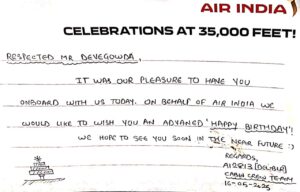 AIR INDIA
CELEBRATIONS AT 35,000 FEET!
RESPECTED MR DEVEGOWDA,
IT WAS OUR PLEASURE TO HAVE YOU
ONBOARD WITH US TODAY. ON BEHALF OF AIR INDIA WE
WOULD LIKE TO WISH YOU AN ADVANED 'HAPPY BIRTHDAY'!
WE HOPE TO SEE YOU SOON IN THE NEAR FUTURE :)
REGARDS,
AI2813 (DEL-BLR)
CABIN CREW TEAM
16-05-2025